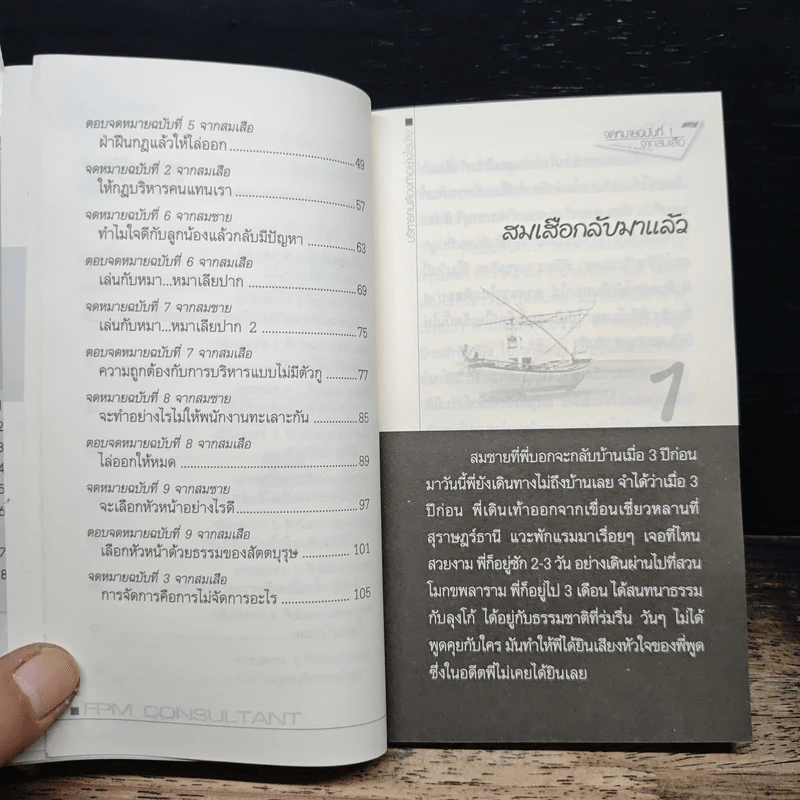 ตอบจดหมายฉบับที่ 5 จากสมเสือ
ฝ่าฝืนกฎแล้วให้ไล่ออก 49
จดหมายฉบับที่ 2 จากสมเสือ
ให้กฎบริหารคนแทนเรา 57
จดหมายฉบับที่ 6 จากสมชาย
ทำไมใจดีกับลูกน้องแล้วกลับมีปัญหา 63
ตอบจดหมายฉบับที่ 6 จากสมเสือ
เล่นกับหมา...หมาเลียปาก 69
จดหมายฉบับที่ 7 จากสมชาย
เล่นกับหมา...หมาเลียปาก 2 75
ตอบจดหมายฉบับที่ 7 จากสมเสือ
ความถูกต้องกับการบริหารแบบไม่มีตัวกู 77
จดหมายฉบับที่ 8 จากสมชาย
จะทำอย่างไรไม่ให้พนักงานทะเลาะกัน 85
ตอบจดหมายฉบับที่ 8 จากสมเสือ
ไล่ออกให้หมด 89
จดหมายฉบับที่ 9 จากสมชาย
จะเลือกหัวหน้าอย่างไรดี 97
ตอบจดหมายฉบับที่ 9 จากสมเสือ
เลือกหัวหน้าด้วยธรรมของสัตตบุรุษ 101
จดหมายฉบับที่ 3 จากสมเสือ
การจัดการคือการไม่จัดการอะไร 105
FPM CONSULTANT
จดหมายฉบับที่ 1
จากสมเสือ
สมเสือกลับมาแล้ว
1
สมชายที่พี่บอกจะกลับบ้านเมื่อ 3 ปีก่อน
มาวันนี้พี่ยังเดินทางไม่ถึงบ้านเลย จำได้ว่าเมื่อ 3
ปีก่อน พี่เดินเท้าออกจากเขื่อนเชี่ยวหลานที่
สุราษฎร์ธานี แวะพักแรมมาเรื่อยๆ เจอที่ไหน
สวยงาม พี่ก็อยู่ซัก 2-3 วัน อย่างเดินผ่านไปที่สวน
โมกขพลาราม พี่ก็อยู่ไป 3 เดือน ได้สนทนาธรรม
กับลุงโก้ ได้อยู่กับธรรมชาติที่ร่มรื่น วันๆ ไม่ได้
พูดคุยกับใคร มันทำให้พี่ได้ยินเสียงหัวใจของพี่พูด
ซึ่งในอดีตพี่ไม่เคยได้ยินเลย